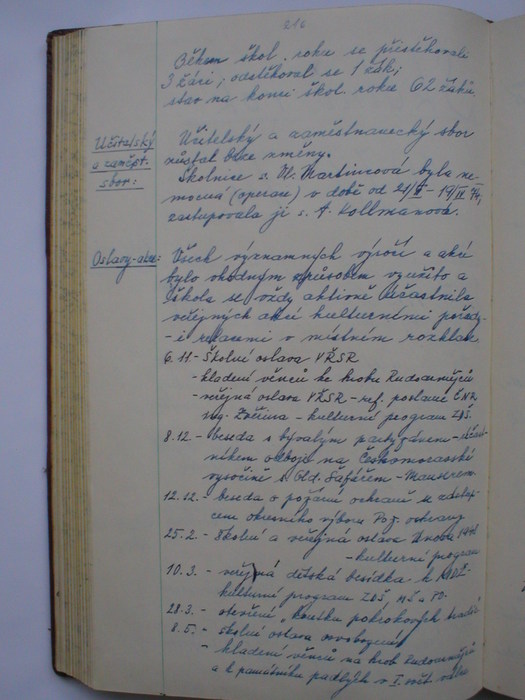 216
Během škol. roku se přistěhovali
3 žáci, odstěhoval se 1 žák;
stav na konci škol. roku 62 žáků
Učitelský
a zaměst.
sbor:
Učitelský a zaměstnanecký sbor
zůstal beze změny.
Školnice s. Ml. Martincová byla ne-
mocná (operace) v době od 21/II - 17/IV 74,
zastupovala ji s. A. Kollmanová.
Oslavy-akce:
Všech významných výročí a akcí
bylo vhodným způsobem využito a
škola se vždy aktivně účastnila
veřejných akcí kulturními pořady
- i relacemi v místním rozhlase
6.11. - Školní oslava VŘSR
- kladení věnců ke hrobu Rudoarmějců
- veřejná oslava VŘSR - ref. poslanec ČNR
ing. Zvěřina - kulturní program ZDŠ.
8.12. - beseda s bývalým partyzánem - účast-
níkem odboje na Českomoravské
vysočině s. Old. Šafářem -
12.12. - beseda o požární ochraně se zástup-
cem okresního výboru Pož. ochrany
25.2. - školní a veřejná oslava Února 1948
- kulturní program
10.3. - veřejná dětská besídka k MDŽ -
kulturní program ZDŠ, MŠ. a PO.
28.3. - otevření "koutku pokrokových tradic"
8.5. - školní oslava osvobození
- kladení věnců na hrob Rudoarmějců
a k památníku padlých v I. svět. válce